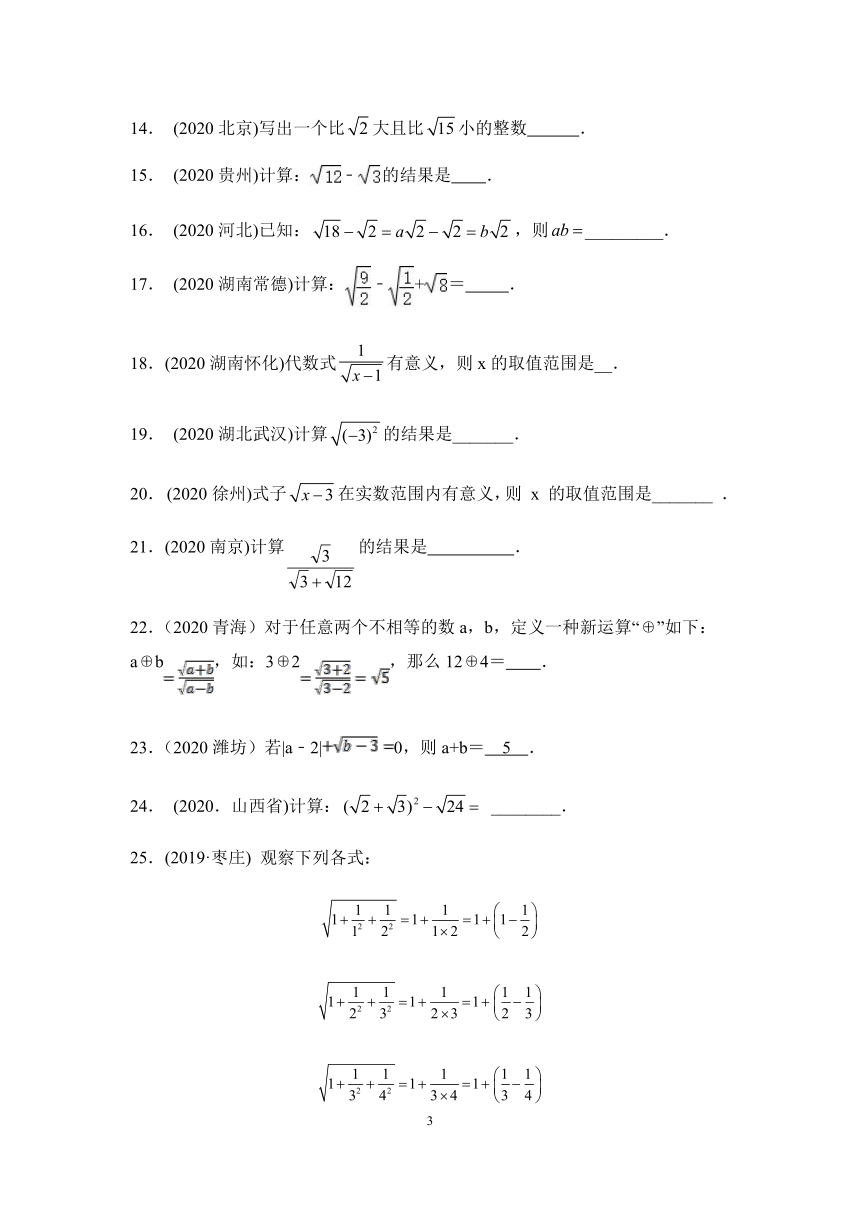 14． (2020 北京)写出一个比√2大且比√15小的整数______．
15． (2020 贵州)计算：√12﹣√3的结果是____．
16． (2020 河北)已知：√18−√2=a√2−√2=b√2，则ab=_________．
17． (2020 湖南常德)计算：√(9/2)﹣√(1/2)+√8=_____．
18．(2020 湖南怀化)代数式1/√(x−1)有意义，则 x 的取值范围是__．
19． (2020 湖北武汉)计算√((−3)²)的结果是_______．
20．(2020 徐州)式子√(x−3)在实数范围内有意义，则 x 的取值范围是_______ ．
21．(2020 南京)计算 √3/(√3+√12) 的结果是__________．
22．（2020 青海）对于任意两个不相等的数 a，b，定义一种新运算“⊕”如下：
a⊕b=√(a+b)/√(a−b)，如：3⊕2=√(3+2)/√(3−2)=√5，那么 12⊕4＝____．
23．（2020 潍坊）若|a﹣2|+√(b−3)=0，则 a+b＝ 5 ．
24． (2020．山西省)计算：(√2+√3)²−√24= ________．
25．(2019·枣庄) 观察下列各式：
√(1+1/1²+1/2²)=1+1/(1×2)=1+(1−1/2)
√(1+1/2²+1/3²)=1+1/(2×3)=1+(1/2−1/3)
√(1+1/3²+1/4²)=1+1/(3×4)=1+(1/3−1/4)
3